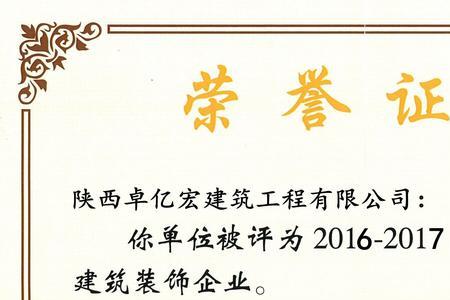 荣誉证
陕西卓亿宏建筑工程有限公司：
你单位被评为 2016-2017
建筑装饰企业。